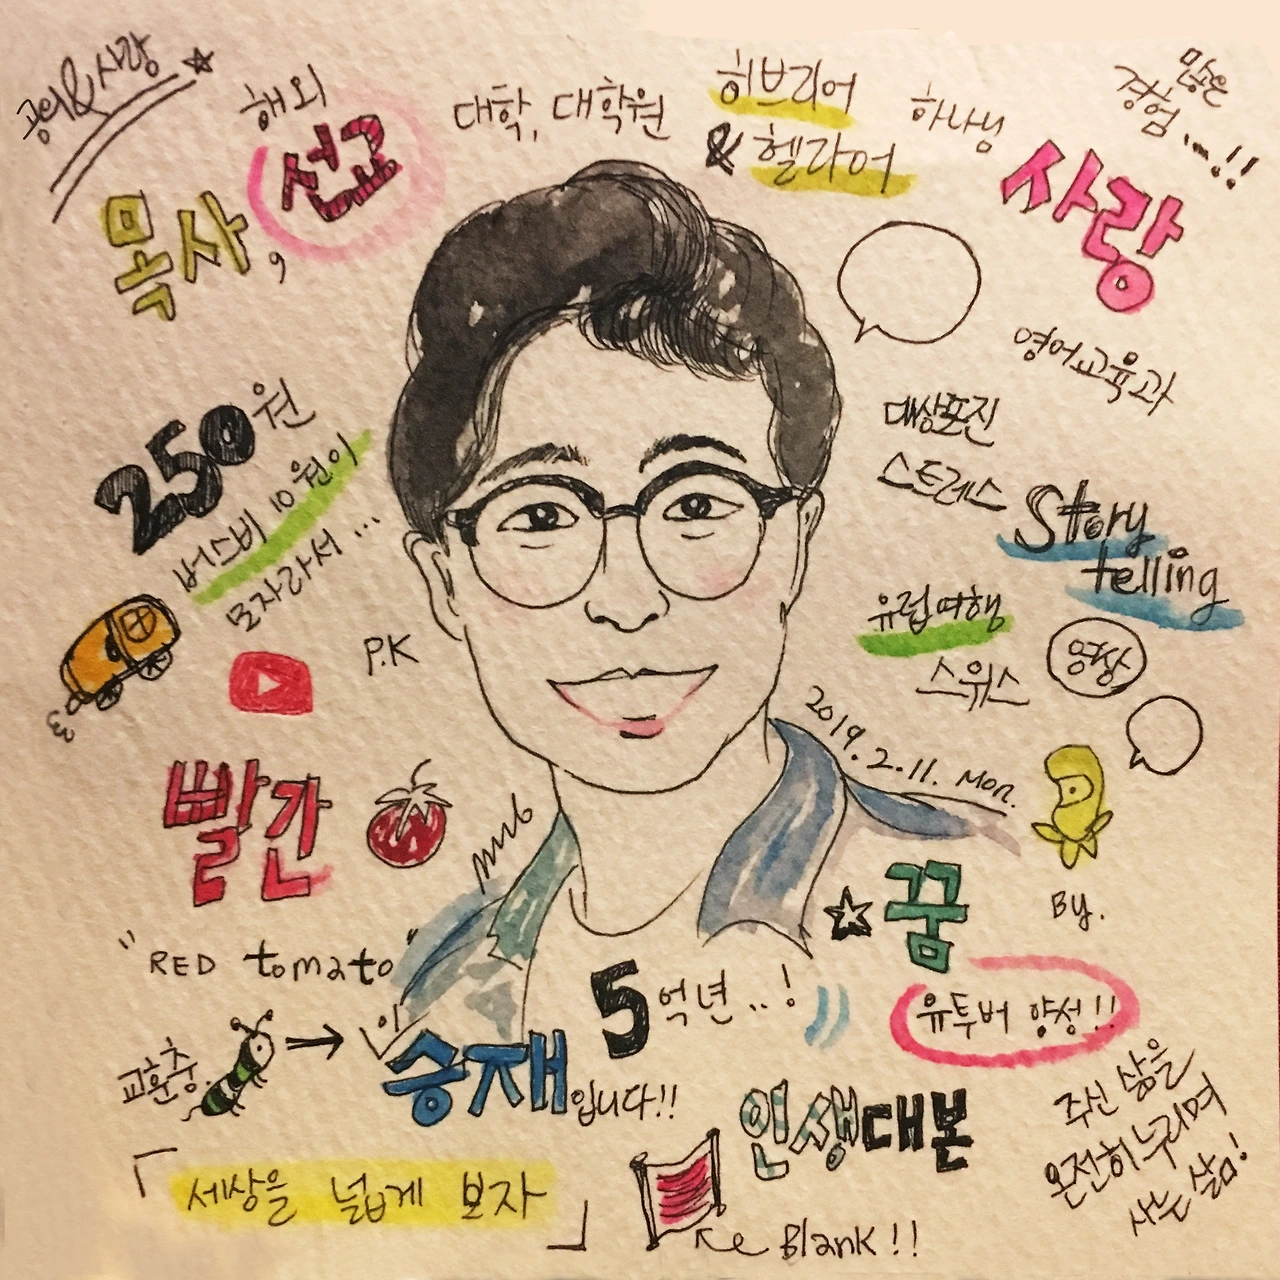 공의&사랑
해외
선교
목사,
대학, 대학원
히브리어
& 헬라어
하나님
사랑
많은
경험...!!
영어교육과
대상포진
스트레스
Story
telling
유럽여행
스위스
영상
250원
버스비 10원이
모자라서...
P.K
2019.2.11. Mon.
빨간
"RED tomato"
꿈
By.
5억년..!
유투버 양성!!
교훈충
승재입니다!!
인생대본
주신 삶을
온전히 누리며
사는 삶!
「세상을 넓게 보자」
Blank!!